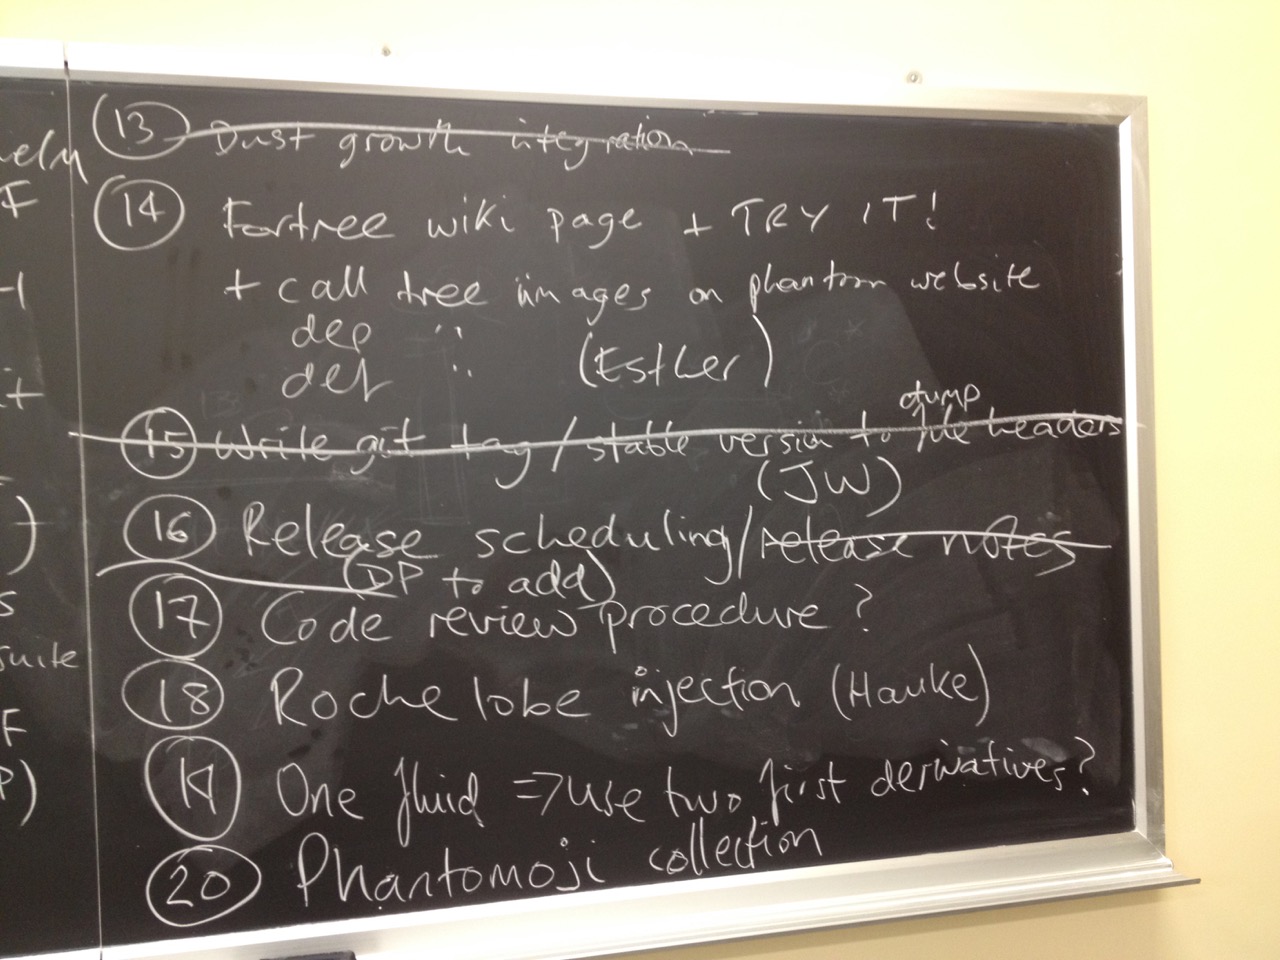 13 Dust growth integration
14 Fortree wiki page + TRY IT!
+ call tree images on phantom website
dep "
def " (Esther)
dump
15 Write git tag / stable version to file headers
(JW)
16 Release scheduling / release notes
(DP to add)
17 Code review procedure?
18 Roche lobe injection (Hauke)
19 One fluid => use two first derivatives?
20 Phantomoji collection
nely
F
t
)
s
suite
F
P)